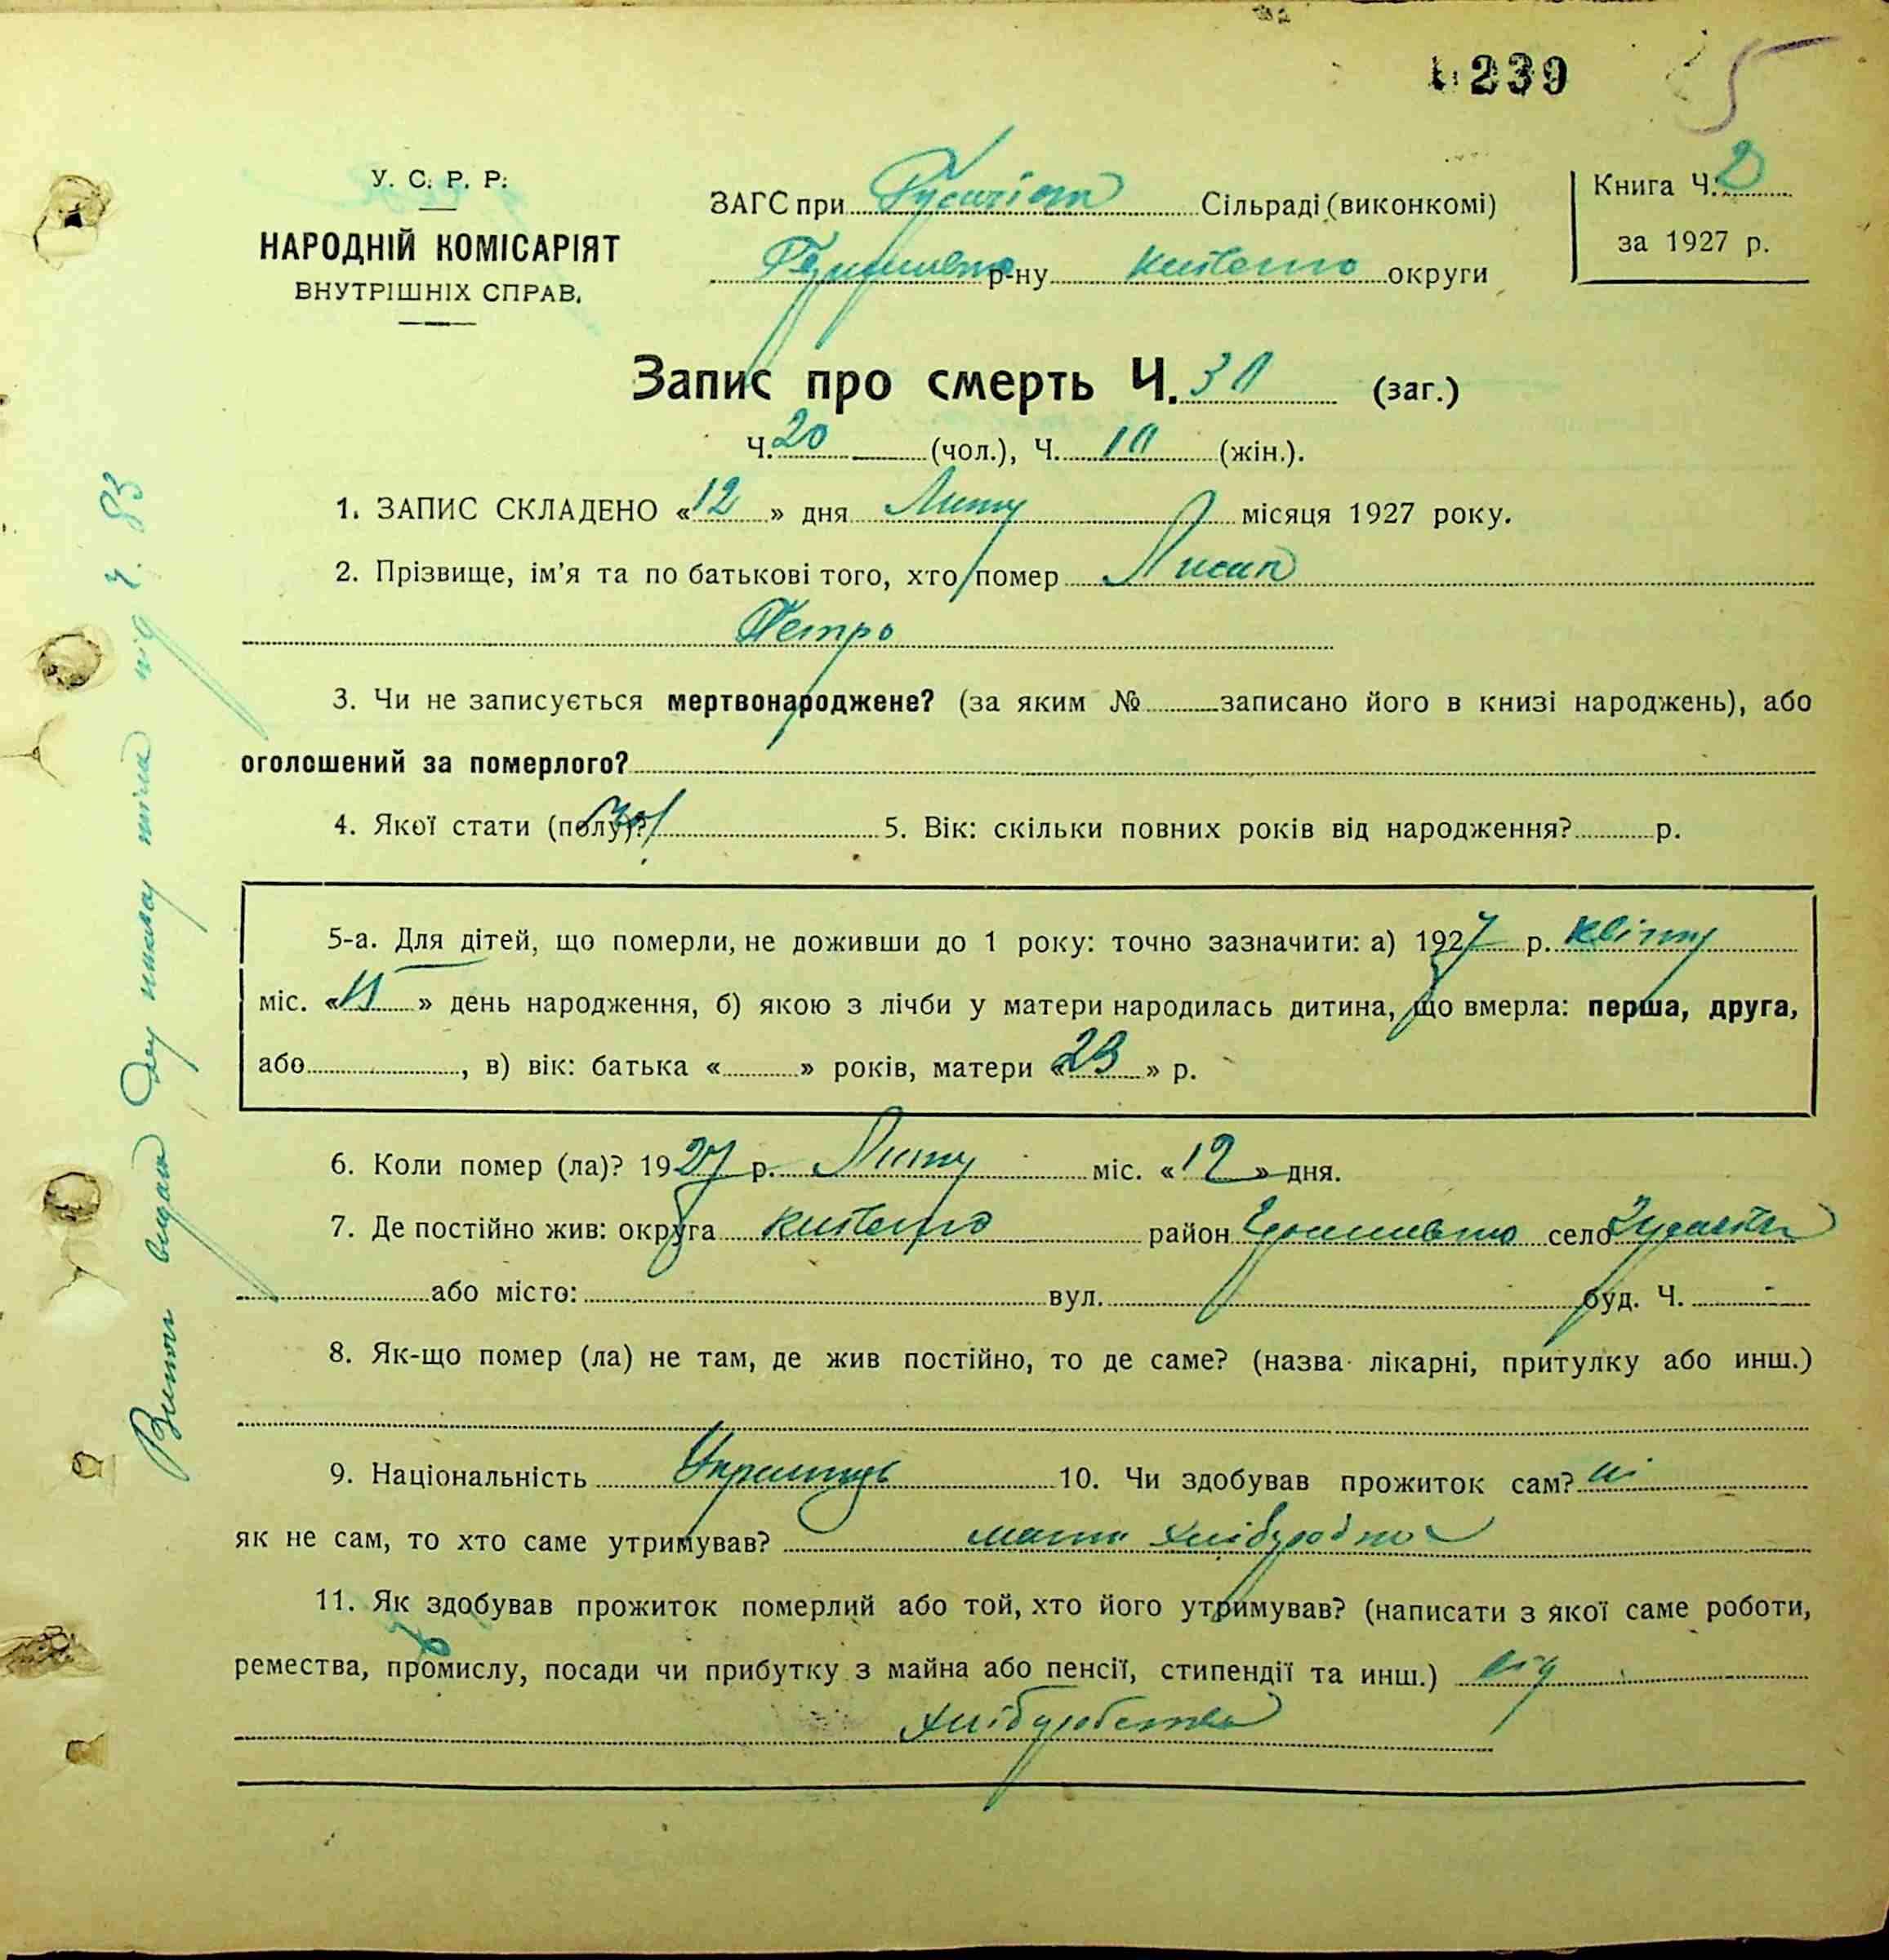 239 5
У. С. Р. Р.
НАРОДНІЙ КОМІСАРІЯТ
ВНУТРІШНІХ СПРАВ.
ЗАГС при Сільраді (виконкомі)
р-ну округи
Книга Ч. 2
за 1927 р.
Запис про смерть Ч. 30 (заг.)
Ч. 20 (чол.), Ч. 10 (жін.).
1. ЗАПИС СКЛАДЕНО «12» дня Люту місяця 1927 року.
2. Прізвище, ім'я та по батькові того, хто помер Лисак
Петро
3. Чи не записується мертвонароджене? (за яким № записано його в книзі народжень), або
оголошений за померлого?
4. Якої стати (полу)? 5. Вік: скільки повних років від народження? р.
5-а. Для дітей, що померли, не доживши до 1 року: точно зазначити: а) 1927 р. Квітну
міс. « » день народження, б) якою з лічби у матери народилась дитина, що вмерла: перша, друга,
або , в) вік: батька « » років, матери «23» р.
6. Коли помер (ла)? 1927 р. Люту міс. «12» дня.
7. Де постійно жив: округа район село
або місто: вул. буд. Ч.
8. Як-що помер (ла) не там, де жив постійно, то де саме? (назва лікарні, притулку або инш.)
9. Національність Українець 10. Чи здобував прожиток сам? ні
як не сам, то хто саме утримував? мати хлібороб
11. Як здобував прожиток померлий або той, хто його утримував? (написати з якої саме роботи,
ремества, промислу, посади чи прибутку з майна або пенсії, стипендії та инш.) від
хліборобства
видано під ч. 83